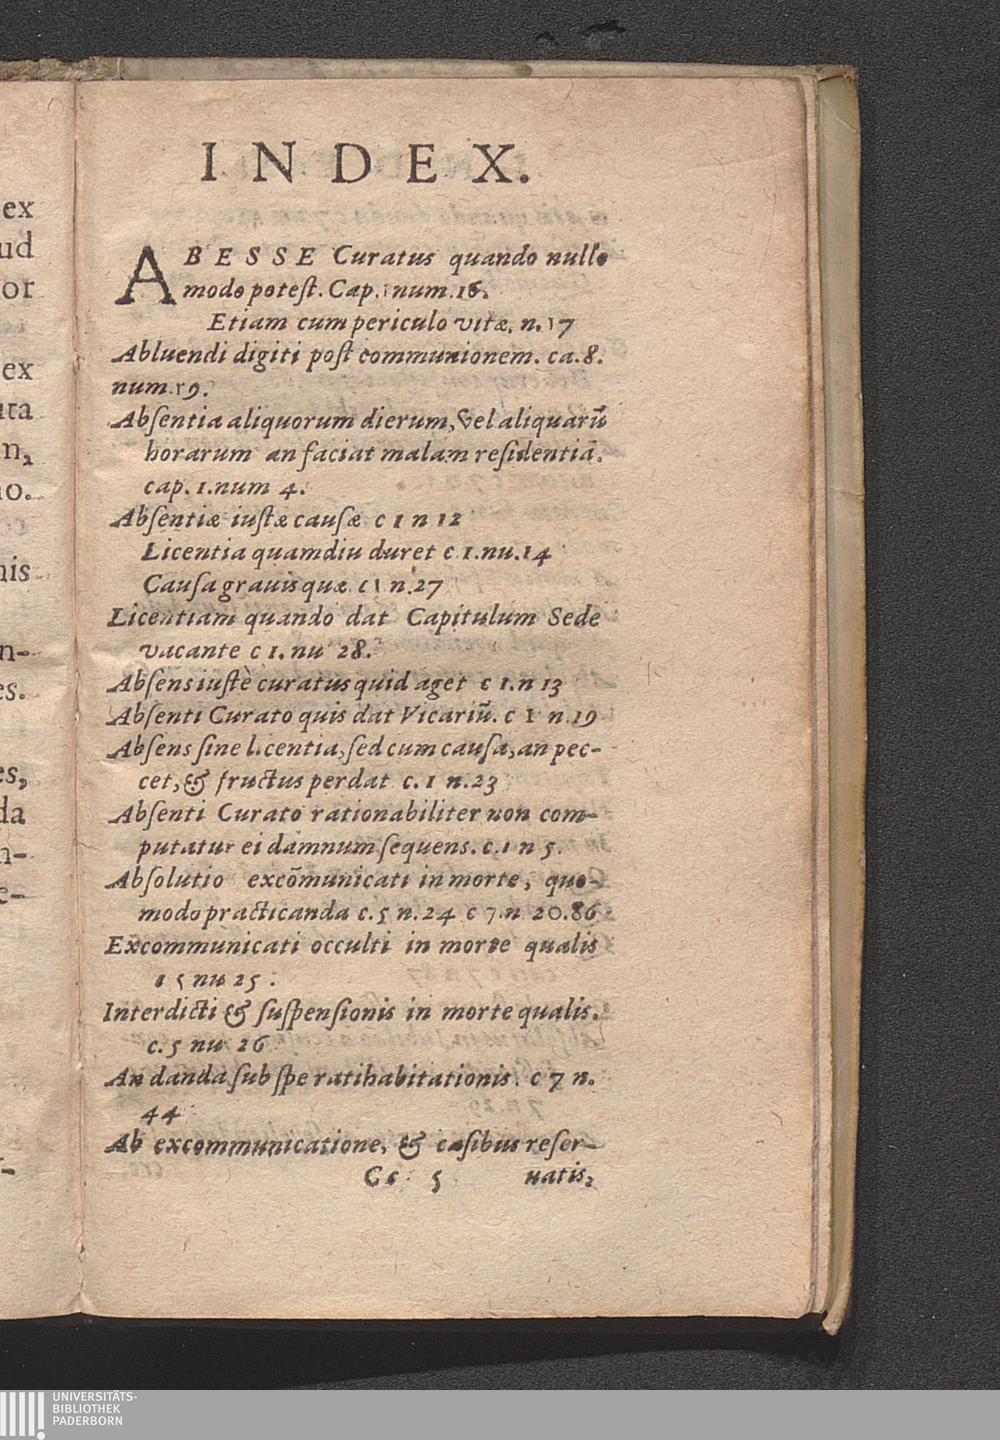 INDEX.
ABESSE Curatus quando nullo
modo potest. Cap. 1 num. 16.
Etiam cum periculo vitæ. n. 17
Abluendi digiti post communionem. ca. 8.
num. 19.
Absentia aliquorum dierum, vel aliquarū
horarum an faciat malam residentiā.
cap. 1. num 4.
Absentiæ iustæ causæ c 1 n 12
Licentia quamdiu duret c 1. nu. 14
Causa grauis quæ c 1 n. 27
Licentiam quando dat Capitulum Sede
vacante c 1. nu 28.
Absens iustè curatus quid aget c 1. n 13
Absenti Curato quis dat Vicariū. c 1 n. 19
Absens sine licentia, sed cum causa, an pec-
cet, & fructus perdat c. 1 n. 23
Absenti Curato rationabiliter non com-
putatur ei damnum sequens. c. 1 n 5.
Absolutio excōmunicati in morte, quo-
modo practicanda c. 5 n. 24 c 7. n 20. 86
Excommunicati occulti in morte qualis
5 nu 25.
Interdicti & suspensionis in morte qualis.
c. 5 nu 26
An danda sub spe ratihabitationis. c 7 n.
44
Ab excommunicatione, & casibus reser-
Cc 5 uatis,
ex
ud
or
ex
uta
n,
no.
nis
n-
es.
es,
da
n-
e-
UNIVERSITÄTS-
BIBLIOTHEK
PADERBORN